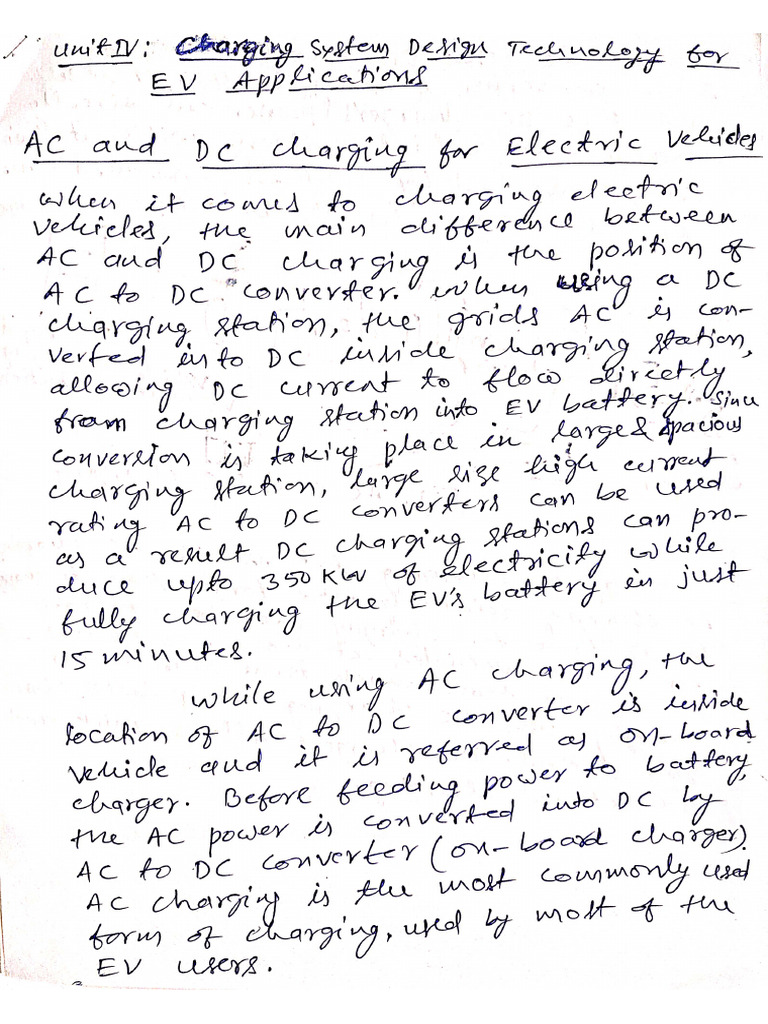 Unit IV: Charging System Design Technology for
EV Applications
AC and DC charging for Electric Vehicles
when it comes to charging electric
vehicles, the main difference between
AC and DC charging is the position of
AC to DC converter. When using a DC
charging station, the grids AC is con-
verted into DC inside charging station,
allowing DC current to flow directly
from charging station into EV battery. Since
conversion is taking place in large & spacious
charging station, large size high current
rating AC to DC converters can be used
as a result DC charging stations can pro-
duce upto 350 KW of electricity while
fully charging the EV's battery in just
15 minutes.
While using AC charging, the
location of AC to DC converter is inside
vehicle and it is referred as on-board
charger. Before feeding power to battery,
the AC power is converted into DC by
AC to DC converter (on-board charger).
AC charging is the most commonly used
form of charging, used by most of the
EV users.